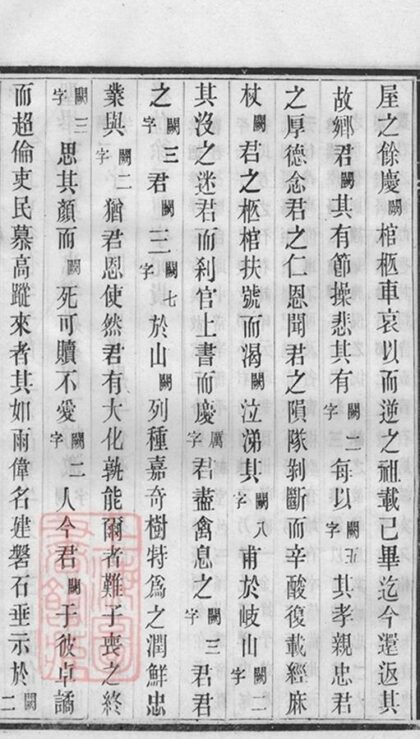 屋之餘慶闕棺柩車哀以而逆之祖載已畢迄今還返其
故鄉君闕其有節操悲其有闕二字每以闕五字其孝親忠君
之厚德念君之仁恩聞君之隕隊剝斷而辛酸復載絰麻
杖闕君之柩棺扶號而渴闕泣涕其闕八字甫於岐山闕二字
其沒之迷君而刹官上書而慶闕字君盡禽息之闕三字君君
之闕字三君闕三闕七字於山闕列種嘉奇樹特為之潤鮮忠
業與闕二字猶君恩使然君有大化孰能爾者難子喪之終
闕三字思其顏而闕死可贖不愛闕二字人今君闕于彼卓譎
而超倫吏民慕高蹤來者其如雨偉名建磐石垂示於闕二